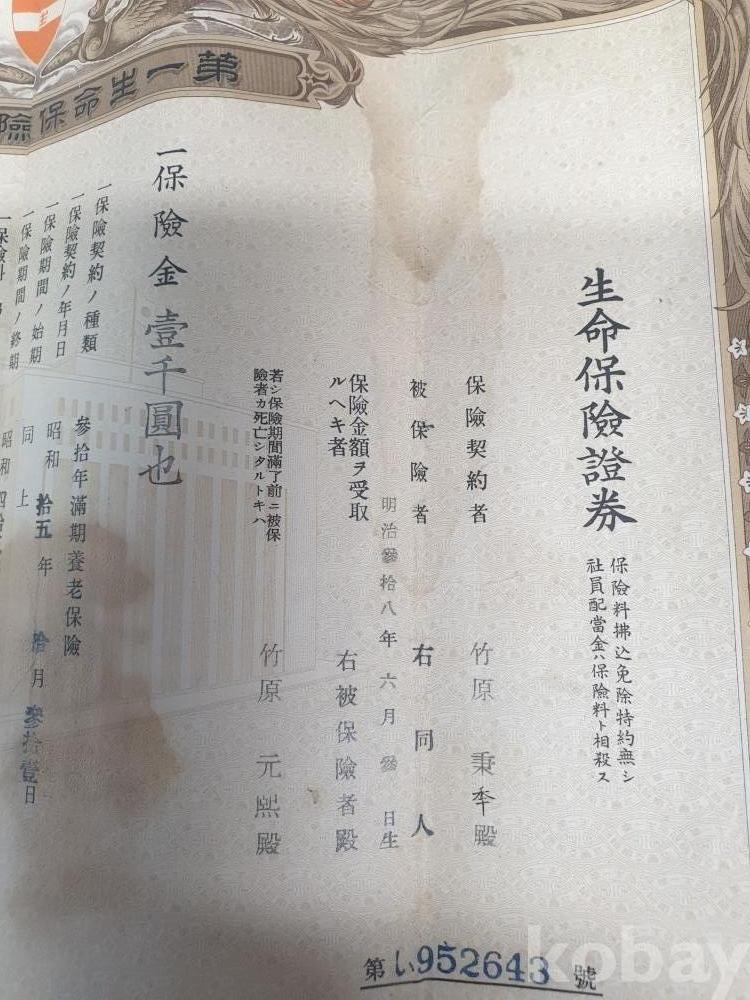 第一生命保險
生命保險證券
保險料拂込免除特約無シ
社員配當金ハ保險料ト相殺ス
保險契約者 竹原 秉 殿
被保險者 右同人
明治參拾八年六月參日生
保險金額ヲ受取
ルヘキ者 右被保險者殿
若シ保險期間滿了前ニ被保
險者カ死亡シタルトキハ 竹原 元熙殿
一保險金壹千圓也
一保險契約ノ種類 參拾年滿期養老保險
一保險契約ノ年月日 昭和拾五年拾月參拾壹日
一保險期間ノ始期 同上
一保險期間ノ終期 昭和四拾
一保險料
第い952643號
kobay